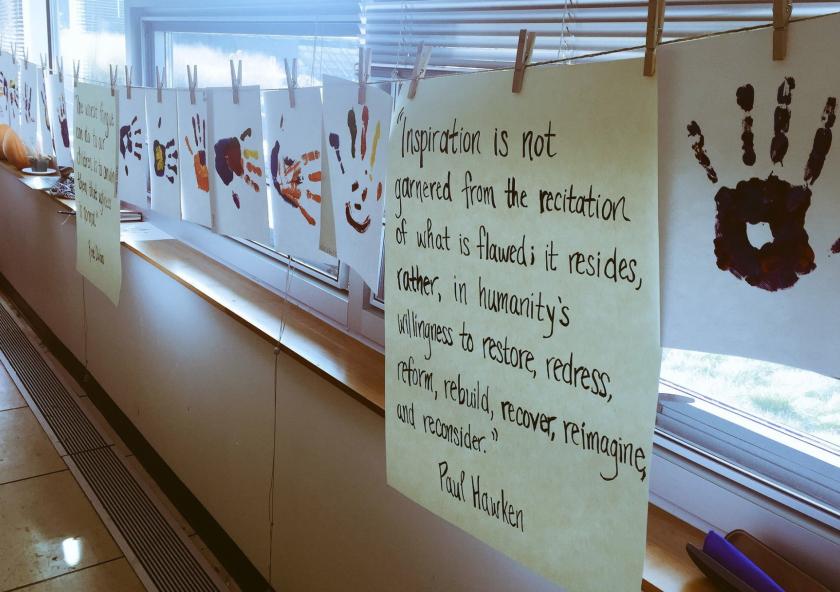 "Inspiration is not
garnered from the recitation
of what is flawed; it resides,
rather, in humanity's
willingness to restore, redress,
reform, rebuild, recover, reimagine,
and reconsider."
Paul Hawken
worst
can do to our